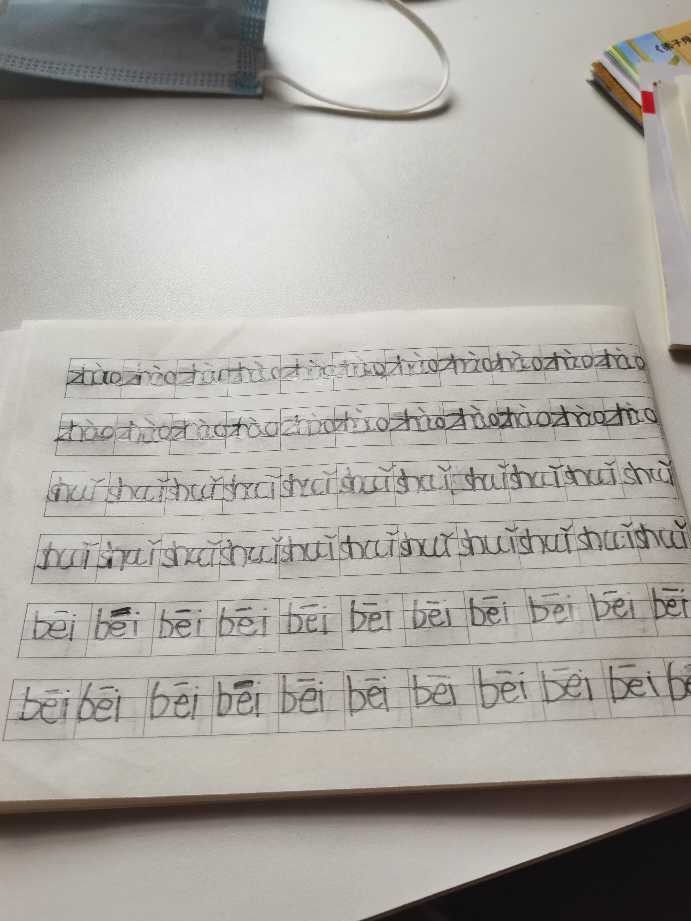 zhào zhào zhào zhào zhào zhào zhào zhào zhào zhào zhào
zhào zhào zhào zhào zhào zhào zhào zhào zhào zhào zhào
shuǐ shuǐ shuǐ shuǐ shuǐ shuǐ shuǐ shuǐ shuǐ shuǐ shuǐ
shuǐ shuǐ shuǐ shuǐ shuǐ shuǐ shuǐ shuǐ shuǐ shuǐ shuǐ
bēi bēi bēi bēi bēi bēi bēi bēi bēi bēi bēi
bēi bēi bēi bēi bēi bēi bēi bēi bēi bēi bē